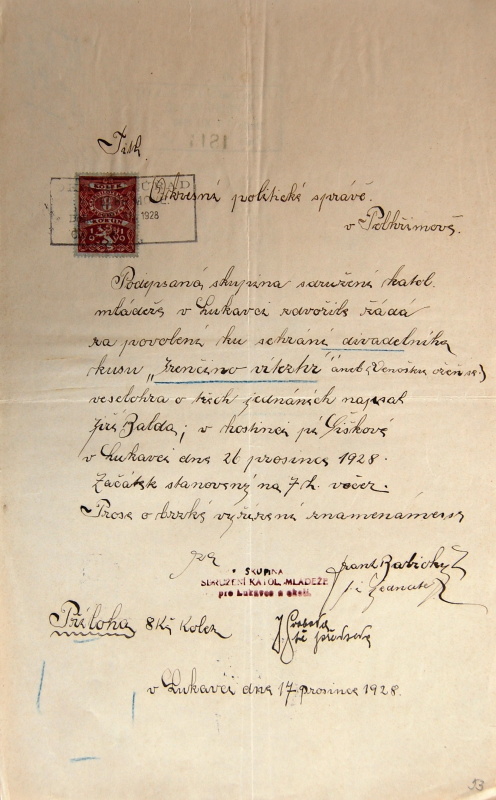 Tit.
Okresní politické správě
v Pelhřimově.
Podepsaná skupina sdružení katol.
mládeže v Lukavci zdvořile žádá
za povolení ku sehrání divadelního
kusu „Irenčino vítězství" aneb (Venouškův
veselohra o třech jednáních napsal
Jiří Balda; v hostinci pí Šiškové
v Lukavci dne 26 prosince 1928.
Začátek stanovený na 7 h. večer.
Prose o brzké vyřízení znamenáme se
SKUPINA
SDRUŽENÍ KATOL. MLÁDEŽE
pro Lukavec a okolí.
Frant Babický
t. č. jednatel
Příloha 8 Kč kolek
J. Svoboda
tč předseda
v Lukavci dne 17 prosince 1928.
1928
53